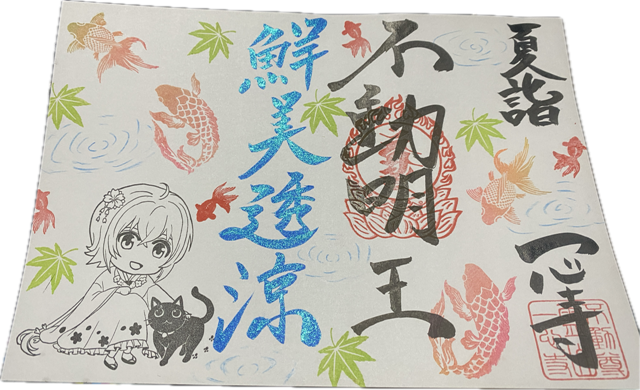 夏詣
一心寺
不動明王
鮮美透涼